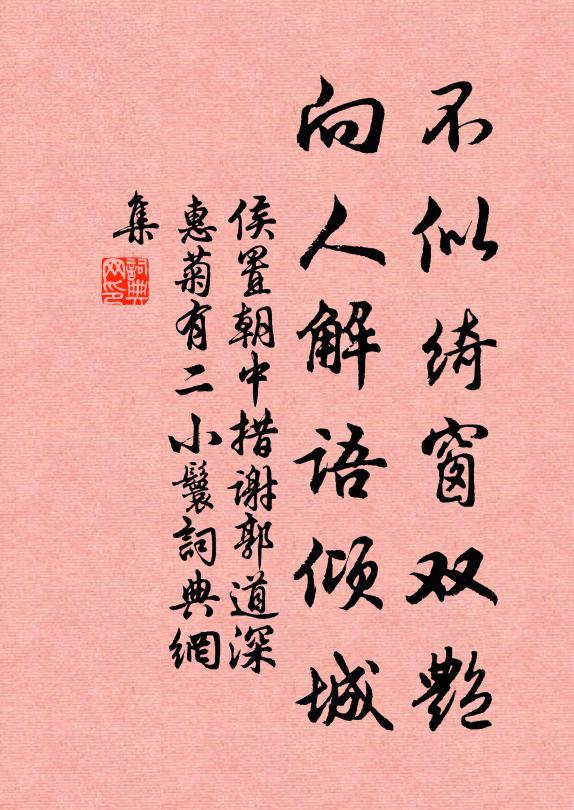 不似绮窗双艳
向人解语倾城
侯置朝中措谢郭道深
惠菊有二小鬟詞典網
集
詞典网印